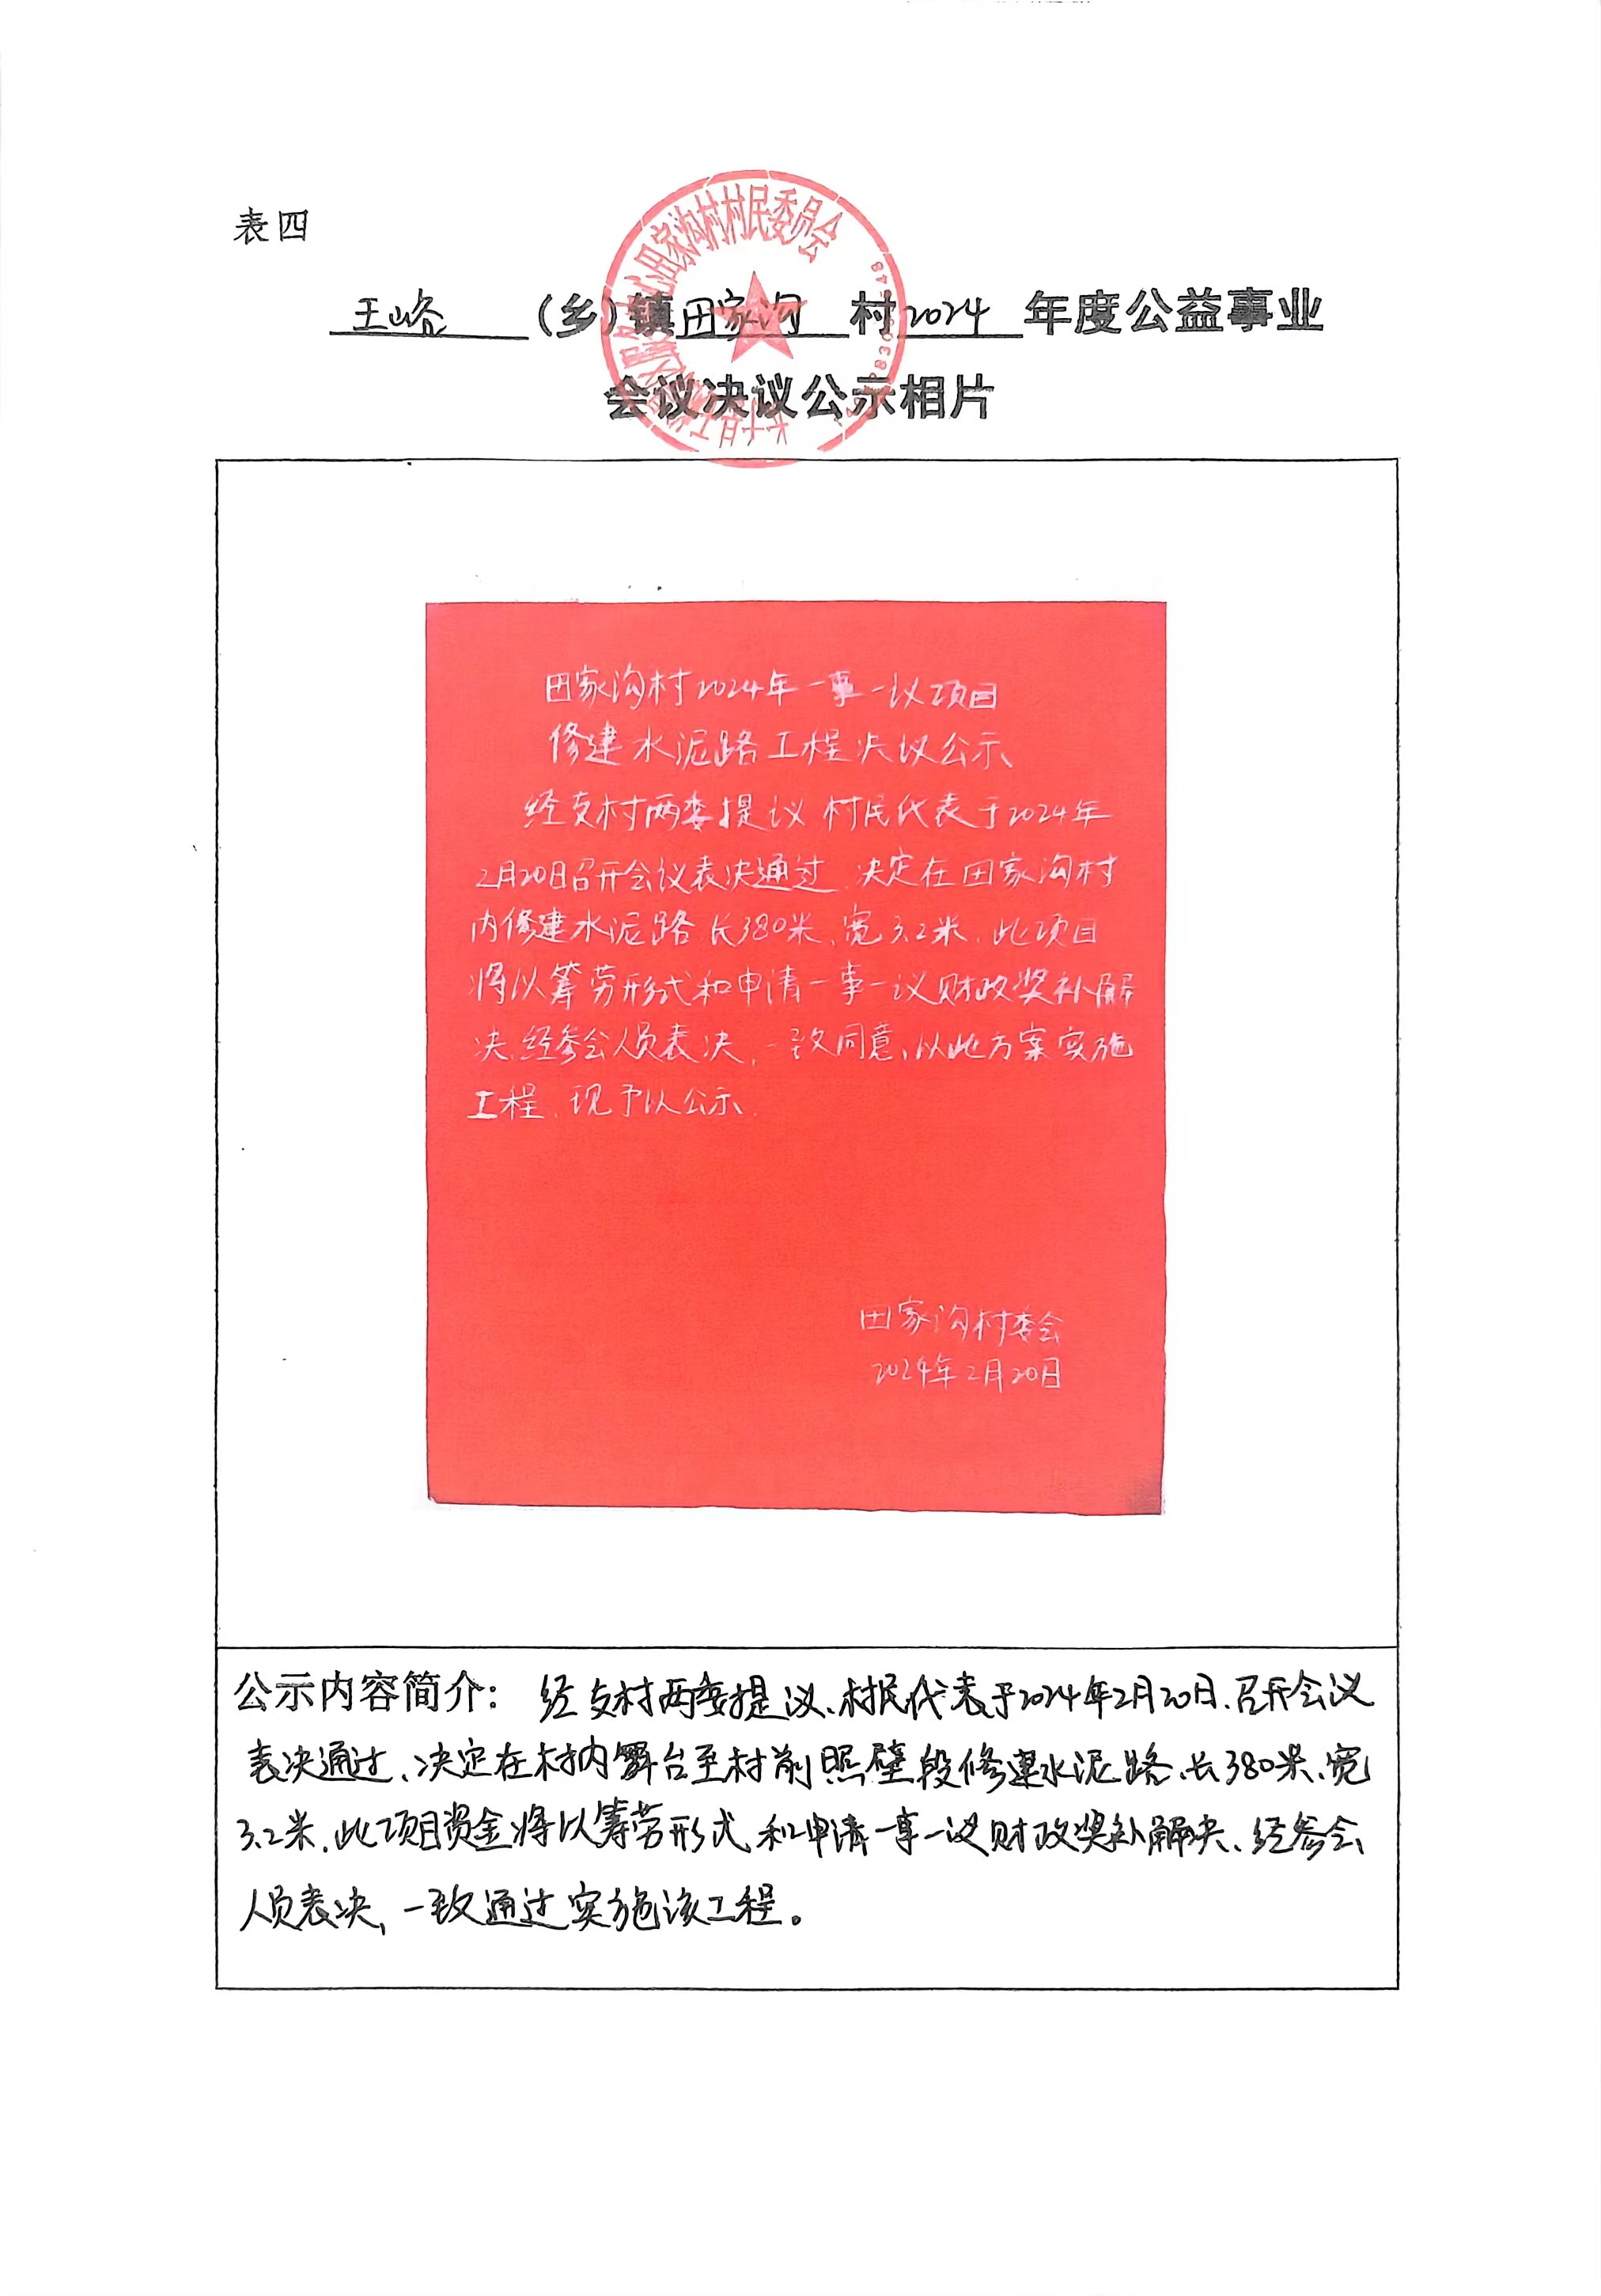 表四
田家沟村村民委员会
王峪（乡）镇田家沟村2024年度公益事业
会议决议公示相片
田家沟村2024年一事一议项目
修建水泥路工程决议公示
经支村两委提议 村民代表于2024年
2月20日召开会议表决通过、决定在田家沟村
内修建水泥路长380米、宽3.2米、此项目
将以筹劳形式和申请一事一议财政奖补解
决、经参会人员表决、一致同意、以此方案实施
工程、现予以公示、
田家沟村委会
2024年2月20日
公示内容简介：经支村两委提议、村民代表于2024年2月20日、召开会议
表决通过、决定在村内舞台至村前照壁段修建水泥路、长380米、宽
3.2米、此项目资金将以筹劳形式和申请一事一议财政奖补解决、经参会
人员表决、一致通过实施该工程。